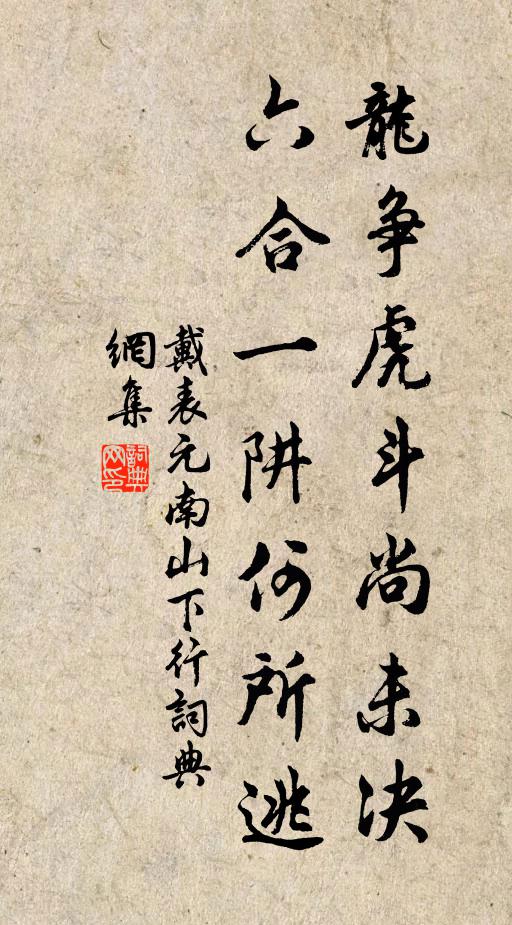 龍争虎斗尚未决
六合一阱何所逃
戴表元南山下行詞典
網集
詞典網印